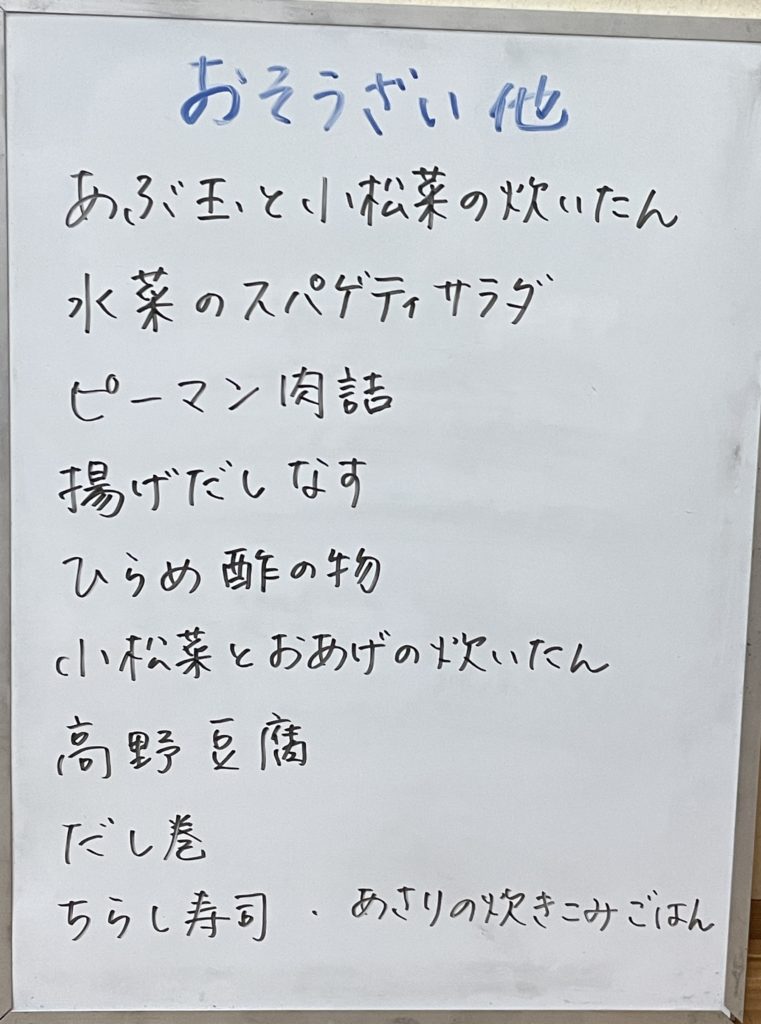 おそうざい 他
あぶ玉と小松菜の炊いたん
水菜のスパゲティサラダ
ピーマン肉詰
揚げだしなす
ひらめ酢の物
小松菜とおあげの炊いたん
高野豆腐
だし巻
ちらし寿司 ・ あさりの炊きこみごはん